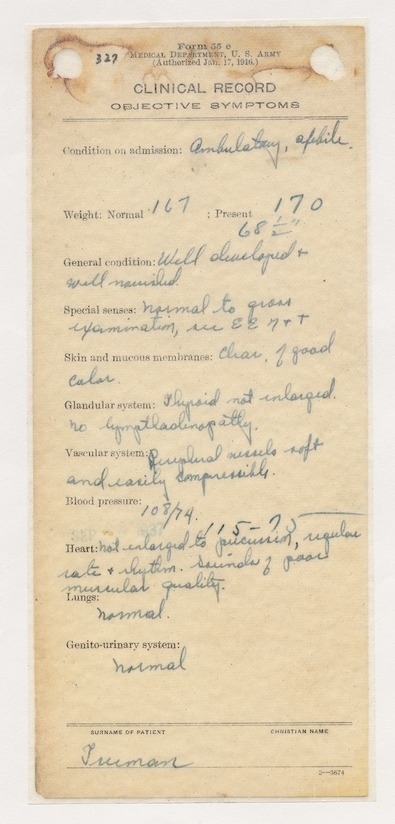 Form 55 e
327
MEDICAL DEPARTMENT, U. S. ARMY
(Authorized Jan. 17, 1916.)
CLINICAL RECORD
OBJECTIVE SYMPTOMS
Condition on admission: Ambulatory, afebile.
Weight: Normal 167 ; Present 170
68 1/2"
General condition: Well developed +
well nourished.
Special senses: Normal to gross
examination, see EENT
Skin and mucous membranes: Clear, of good
color.
Glandular system: Thyroid not enlarged.
No lymphadenopathy.
Vascular system: Peripheral vessels soft
and easily compressible.
Blood pressure: 108/74.
SEP
115-75
Heart: Not enlarged to percussion, regular
rate + rhythm. Sounds of poor
muscular quality.
Lungs:
Normal.
Genito-urinary system:
Normal
SURNAME OF PATIENT CHRISTIAN NAME
Truman
2—3674